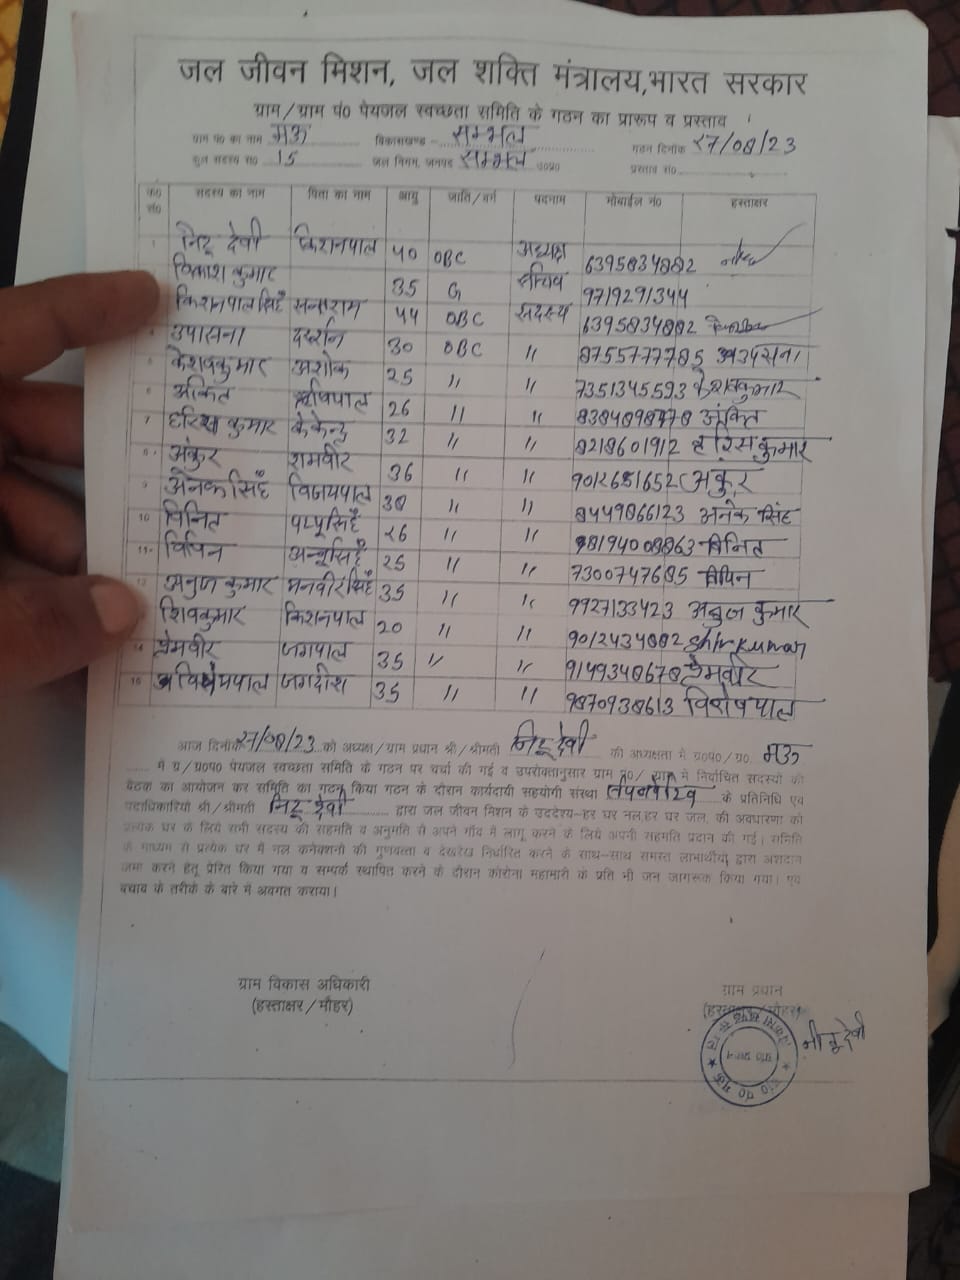 जल जीवन मिशन, जल शक्ति मंत्रालय,भारत सरकार
ग्राम/ग्राम पं० पेयजल स्वच्छता समिति के गठन का प्रारूप व प्रस्ताव
ग्राम पं० का नाम मऊ विकासखण्ड - सम्भल गठन दिनांक २7/08/23
कुल सदस्य सं० 15 जल निगम, जनपद सम्भल उ०प्र० प्रस्ताव सं०
क्र० सं० सदस्य का नाम पिता का नाम आयु जाति/वर्ग पदनाम मोबाईल नं० हस्ताक्षर
1 निरू देवी किरानपाल 40 OBC अध्यक्ष 6395834882
विकाश कुमार 35 G सचिव 9719291344
किरानपाल सिहँ 44 OBC सदस्य 6395834882
4 उपासना दर्शन 30 OBC " 8755777785 उपासना
5 केशवकुमार अशोक 25 " " 7351345593 केशवकुमार
6 अंकित ऋषिपाल 26 " " अंकित
7 हरिश कुमार 32 " " 8218601912 हरिस कुमार
8 अंकुर रामवीर 36 " " 9012681652 अंकुर
9 अनेक सिहँ विजयपाल 38 " " 8449866123 अनेक सिंह
10 विनित पप्पूसिहँ २6 " " विनित
11 विपिन 25 " " 7300747685 विपिन
12 अनुज कुमार मनवीर सिहँ 35 " " 9927133423 अनुज कुमार
शिवकुमार किशनपाल 20 " " 9012434882 Shivkumar
14 प्रेमवीर जगपाल 35 " " 9149348678 प्रेमवीर
15 विशेषपाल जगदीश 35 " " 9870938613 विशेषपाल
आज दिनांक २7/08/23 को अध्यक्ष/ग्राम प्रधान श्री/श्रीमती निरू देवी की अध्यक्षता में ग्र०प०/ग्रा० मऊ
में ग्र/ग्र०प० पेयजल स्वच्छता समिति के गठन पर चर्चा की गई व उपरोक्तानुसार ग्राम प०/ ग्राम में निर्वाचित सदस्यों की
बैठक का आयोजन कर समिति का गठन किया गठन के दौरान कार्यदायी सहयोगी संस्था के प्रतिनिधि एवं
पदाधिकारियो श्री/श्रीमती निरू देवी द्वारा जल जीवन मिशन के उददेश्य-हर घर नल,हर घर जल, की अवधारणा को
प्रत्येक घर के लिये सभी सदस्य की सहमति व अनुमति से अपने गाँव में लागू करने के लिये अपनी सहमति प्रदान की गई। समिति
के माध्यम से प्रत्येक घर में नल कनेक्शनो की गुणवत्ता व देखरेख निर्धारित करने के साथ-साथ समस्त लाभार्थीयो द्वारा अशदान
जमा करने हेतू प्रेरित किया गया व सम्पर्क स्थापित करने के दौरान कोरोना महामारी के प्रति भी जन जागरूक किया गया। एवं
बचाव के तरीके के बारे में अवगत कराया।
ग्राम विकास अधिकारी
(हस्ताक्षर/मौहर)
ग्राम प्रधान
(हस्ताक्षर/मौहर)
नीरू देवी